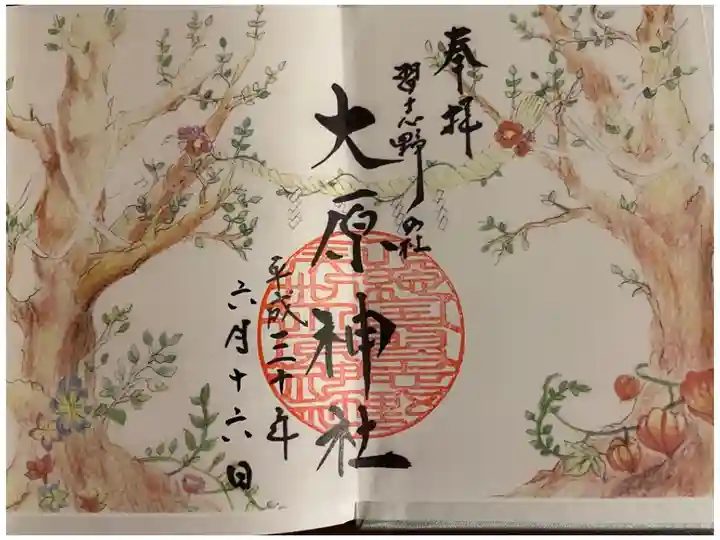 奉拝
習志野の社
大原神社
平成三十年
六月十六日